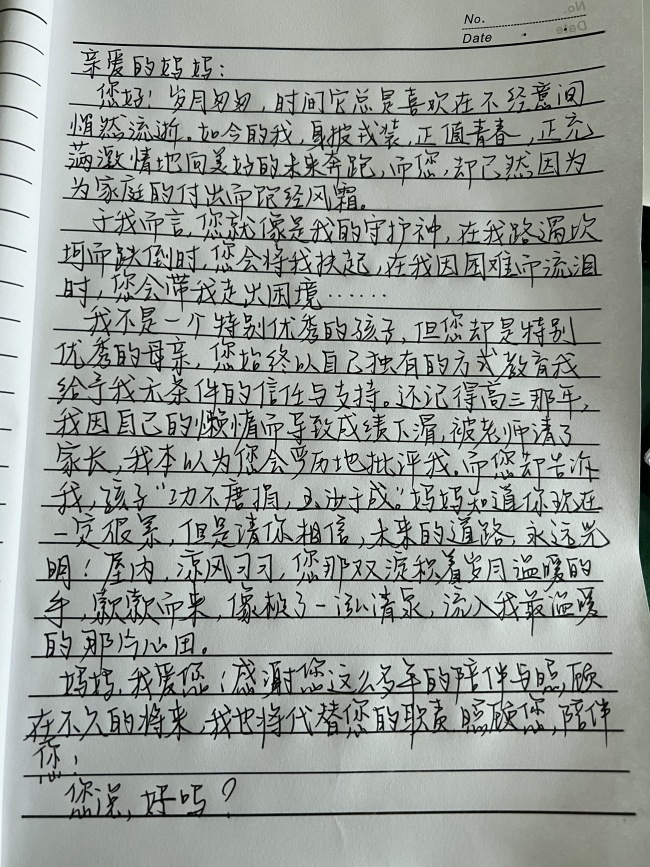 No.
Date
亲爱的妈妈：
您好！岁月匆匆，时间它总是喜欢在不经意间
悄然流逝。如今的我，身披戎装，正值青春，正充
满激情地向美好的未来奔跑，而您，却已然因为
为家庭的付出而饱经风霜。
于我而言，您就像是我的守护神，在我路遇坎
坷而跌倒时，您会将我扶起，在我因困难而流泪
时，您会带我走出困境……
我不是一个特别优秀的孩子，但您却是特别
优秀的母亲，您始终以自己独有的方式教育我
给予我无条件的信任与支持。还记得高三那年，
我因自己的懒惰而导致成绩下滑，被老师请了
家长，我本以为您会严厉地批评我。而您却告诉
我，孩子“功不唐捐，玉汝于成。”妈妈知道你现在
一定很累，但是请你相信，未来的道路，永远光
明！屋内，凉风习习，您那双淀积着岁月温暖的
手，款款而来，像极了一泓清泉，流入我最温暖
的那片心田。
妈妈，我爱您！感谢您这么多年的陪伴与照顾
在不久的将来，我也将代替您的职责照顾您，陪伴
您！
您说，好吗？